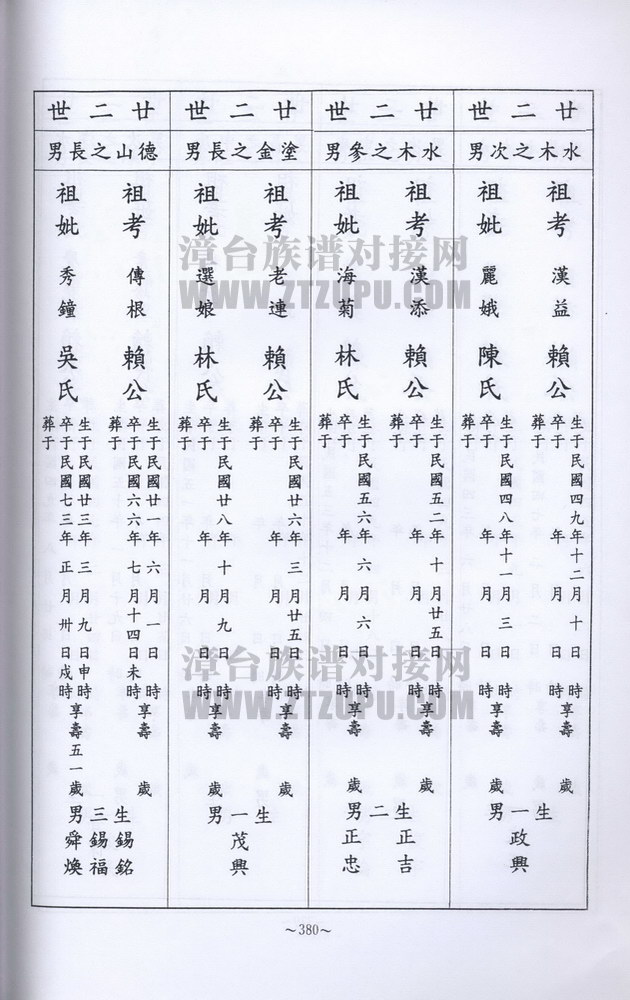 廿二世
水木之次男
祖考 漢益 賴公
生于民國四九年十二月十日 時
卒于 年 月 日 時 享壽 歲
葬于
祖妣 麗娥 陳氏
生于民國四八年十一月三日 時
卒于 年 月 日 時 享壽 歲
葬于
生一男
政興
廿二世
水木之參男
祖考 漢添 賴公
生于民國五二年十月廿五日 時
卒于 年 月 日 時 享壽 歲
葬于
祖妣 海菊 林氏
生于民國五六年六月六日 時
卒于 年 月 日 時 享壽 歲
葬于
生二男
正吉
正忠
廿二世
塗金之長男
祖考 老連 賴公
生于民國廿六年三月廿五日 時
卒于 年 月 日 時 享壽 歲
葬于
祖妣 選娘 林氏
生于民國廿八年十月九日 時
卒于 年 月 日 時 享壽 歲
葬于
生一男
茂興
廿二世
德山之長男
祖考 傳根 賴公
生于民國廿一年六月一日 時
卒于民國六六年七月十四日未時 享壽 歲
葬于
祖妣 秀鐘 吳氏
生于民國廿三年三月九日申時
卒于民國七三年正月卅日戌時 享壽五一歲
葬于
生三男
錫銘
錫福
舜煥
~380~
漳台族谱对接网
WWW.ZTZUPU.COM
漳台族谱对接网
WWW.ZTZUPU.COM